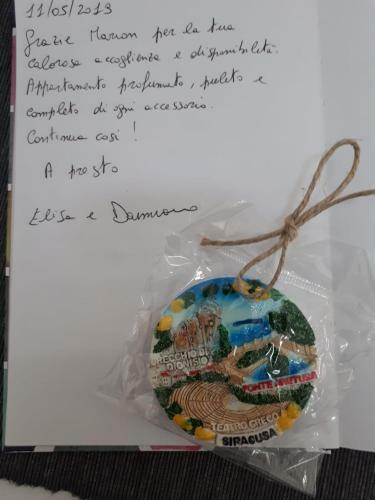 11/05/2019
Grazie Marion per la tua
calorosa accoglienza e disponibilità.
Appartamento profumato, pulito e
completo di ogni accessorio.
Continua così!
A presto
Elisa e Damiano
ORECCHIO DI
DIONISIO
FONTE ARETUSA
TEATRO GRECO
SIRACUSA